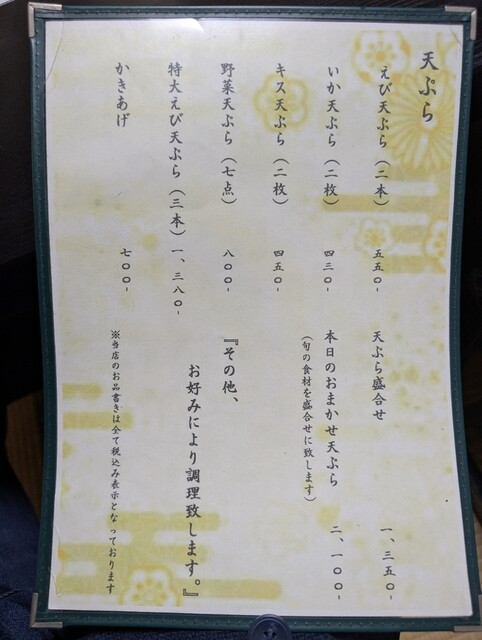 天ぷら
えび天ぷら（二本） 五五〇-
いか天ぷら（二枚） 四三〇-
キス天ぷら（二枚） 四五〇-
野菜天ぷら（七点） 八〇〇-
特大えび天ぷら（三本） 一、三八〇-
かきあげ 七〇〇-
天ぷら盛合せ 一、三五〇-
本日のおまかせ天ぷら 二、一〇〇-
（旬の食材を盛合せに致します）
『その他、
お好みにより調理致します。』
※当店のお品書きは全て税込み表示となっております